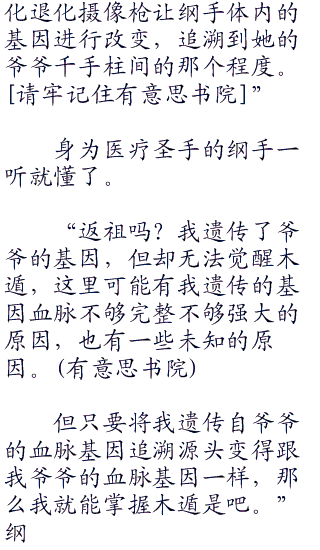 化退化摄像枪让纲手体内的
基因进行改变，追溯到她的
爷爷千手柱间的那个程度。
[请牢记住有意思书院]”
身为医疗圣手的纲手一
听就懂了。
“返祖吗？我遗传了爷
爷的基因，但却无法觉醒木
遁，这里可能有我遗传的基
因血脉不够完整不够强大的
原因，也有一些未知的原
因。(有意思书院)
但只要将我遗传自爷爷
的血脉基因追溯源头变得跟
我爷爷的血脉基因一样，那
么我就能掌握木遁是吧。”
纲